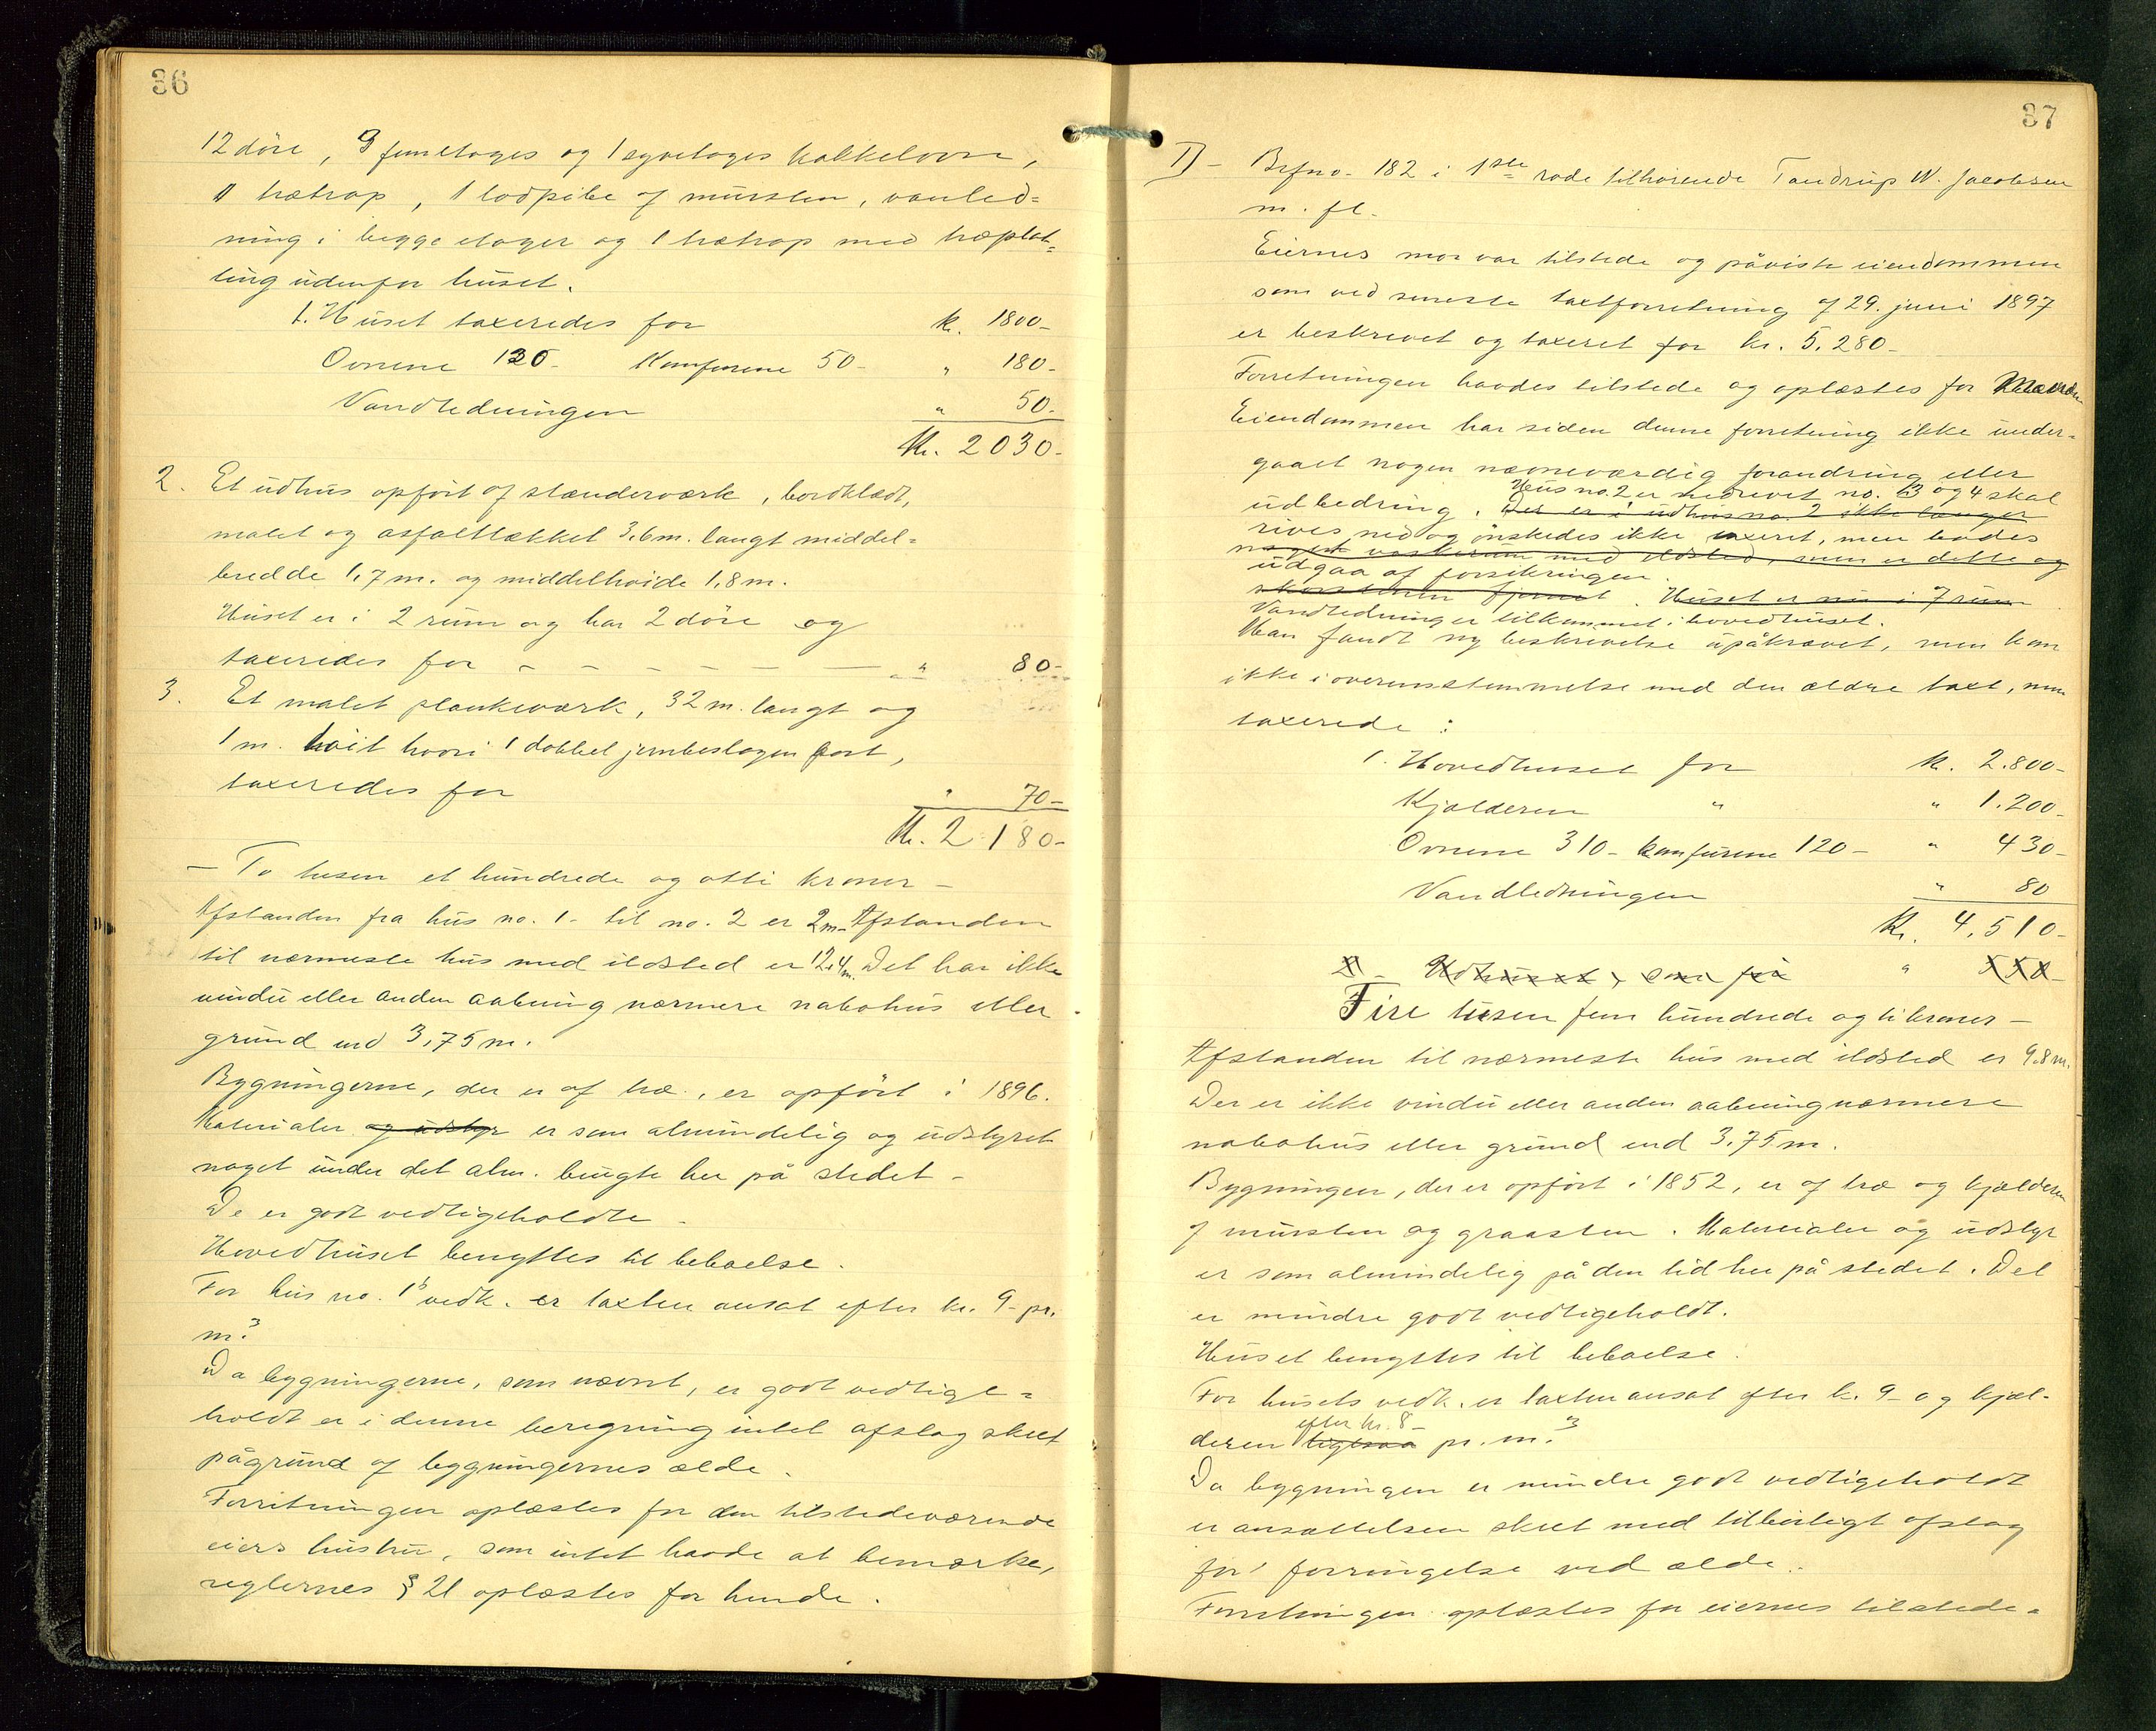 36
12 döre, 3 femetages og 1 kakkelovne,
1 trætrap, 1 lodpibe af mursten, vanled=
ning i begge etager og 1 trætrap med træplat=
ting udenfor huset.
1. Huset taxeredes for kr. 1800-
Ovnene 130- Komfurene 50- " 180-
Vandledningen " 50-
Kr. 2030-
2. Et udhus opført af stænderværk, bordklædt,
malet og asfalttækket 3,6 m. langt middel=
bredde 1,7 m. og middelhøide 1,8 m.
Huset er i 2 rum og har 2 döre og
taxeredes for - - - - - " 80-
3. Et malet plankeværk, 32 m. langt og
1 m. høit hvori 1 dobbel jernbeslagen port,
taxeredes for " 70-
Kr. 2180-
- To tusen et hundrede og otti kroner -
Afstanden fra hus no. 1 - til no. 2 er 2 m - Afstanden
til nærmeste hus med ildsted er 12,4 m. Det har ikke
vindu eller anden aabning nærmere nabohus eller
grund end 3,75 m.
Bygningerne, der er af træ, er opført i 1896.
Materialer og udstyr er som almindelig og udstyret
noget under det alm. brugte her på stedet -
De er godt vedligeholdte -
Hovedhuset benyttes til beboelse.
For hus no. 1s vedk. er taxten ansat efter kr. 9- pr.
m.3
Da bygningerne, som nævnt, er godt vedlige=
holdt er i denne beregning intet afslag skeet
pågrund af bygningernes ælde.
Forretningen oplæstes for den tilstedeværende
eiers hustru, som intet havde at bemærke,
reglernes § 21 oplæstes for hende.
37
Brfno. 182 i 1ste rode tilhørende Tandrup W. Jacobsen
m. fl.
Eiernes mor var tilstede og påviste eiendommen
som ved seneste taxtforretning af 29. juni 1897
er beskrevet og taxeret for kr. 5.280-
Forretningen havdes tilstede og oplæstes for
Eiendommen har siden denne forretning ikke under=
gaaet nogen nævneværdig forandring eller
Hus no. 2 er nedrevet no. 3 og 4 skal
udbedring. Der er i udhus no. 2 ikke længer
rives ned og ønskedes ikke taxeret, men bødes
nogen vaskerum med ildsted, men er dette og
udgaa af forsikringen.
skorstenen fjernet. Huset er nu i 7 rum
Vandledning er tilkommet i hovedhuset.
Man fandt ny beskrivelse upåkrævet, men kom
ikke i overensstemmelse med den ældre taxt, men
taxerede:
1. Hovedhuset for kr. 2.800-
Kjælderen " " 1.200-
Ovnene 310- komfurene 120- " 430-
Vandledningen " 80
Kr. 4.510-
Fire tusen fem hundrede og ti kroner -
Afstanden til nærmeste hus med ildsted er 9,8 m.
Der er ikke vindu eller anden aabning nærmere
nabohus eller grund end 3,75 m.
Bygningen, der er opført i 1852, er af træ og kjælderen
af mursten og graasten. Materialer og udstyr
er som almindelig på den tid her på stedet. Det
er mindre godt vedligeholdt.
Huset benyttes til beboelse.
For husets vedk. er taxten ansat efter kr. 9- og kjæl-
efter kr. 8-
deren ligesaa pr. m.3
Da bygningen er mindre godt vedligeholdt
er ansættelsen skeet med tilbørligt afslag
for forringelse ved ælde.
Forretningen oplæstes for eiernes tilstede=